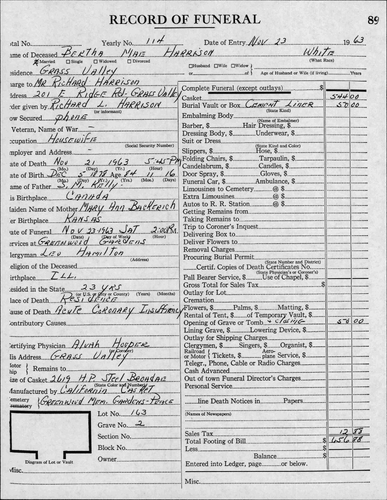 RECORD OF FUNERAL 89
Total No. Yearly No. 114 Date of Entry Nov 23 1963
Name of Deceased Bertha Mae Harrison White
Married Single Widowed Divorced Husband Wife Widow (What Race)
Residence Grass Valley Age of Husband or Wife (if living) Years
Charge to Mr Richard Harrison Complete Funeral (except outlays) $
Address 201 E Ridge Rd. Grass Valley Casket 544 00
Order given by Richard L. Harrison Burial Vault or Box Cement Liner 50 00
(or informant) (State Kind)
How Secured phone Embalming Body
(Name of Embalmer)
Veteran, Name of War - Barber, $ Hair Dressing, $
Occupation Housewife Dressing Body, $ Underwear, $
(Social Security Number) Suit or Dress
(State Kind and Color)
Employer and Address - Slippers, $ Hose, $
Folding Chairs, $ Tarpaulin, $
Date of Death Nov 21 1963 5:45 PM Candelabrum, $ Candles, $
Date of Birth Dec 5 1878 Age 84 11 16 Door Spray, $ Gloves, $
Name of Father S. M. Kelly Funeral Car, $ Ambulance, $
Limousines to Cemetery @ $
His Birthplace Canada Extra Limousines @ $
Autos to R. R. Station @ $
Maiden Name of Mother Mary Ann Getting Remains from
Her Birthplace Kansas Taking Remains to
Date of Funeral Nov 23 1963 Sat 2:00 PM Trip to Coroner's Inquest
Services at Greenwood Gardens Delivering Box to
Clergyman Leo Hamilton Deliver Flowers to
(Address) Removal Charges
Religion of the Deceased Procuring Burial Permit
(State Number and District)
Birthplace ILL. Certif. Copies of Death Certificates No.
(State Physician's or Coroner's)
Resided in the State 23 yrs Pall Bearer Service, $ Use of Chapel, $
Gross Total for Sales Tax $
Place of Death Residence Outlay for Lot
Cause of Death Acute Coronary Cremation
Flowers, $ Palms, $ Matting, $
Contributory Causes Rental of Tent, $ of Temporary Vault, $
Opening of Grave or Tomb + closing 50 00
Lining Grave, $ Lowering Device, $
Outlay for Shipping Charges
Certifying Physician Alvah Hooper Clergymen, $ Singers, $ Organist, $
His Address Grass Valley Railroad or Motor Tickets, $ Aeroplane Service, $
Telegr., Phone, Cable or Radio Charges
Motor Ship Remains to Cash Advanced
Size of Casket 2619 H.P. Steel Out of town Funeral Director's Charges
(State Color and Number)
Manufactured by California Casket Personal Service
Cemetery Greenwood Mem. Gardens - Peace
Crematory line Death Notices in Papers
Lot No. 163
(Names of Newspapers)
Grave No. 2
Section No. Sales Tax 12 88
Total Footing of Bill $ 656 88
Block No. Less $
Balance $
Owner Entered into Ledger, page or below.
Diagram of Lot or Vault
Misc. Misc.